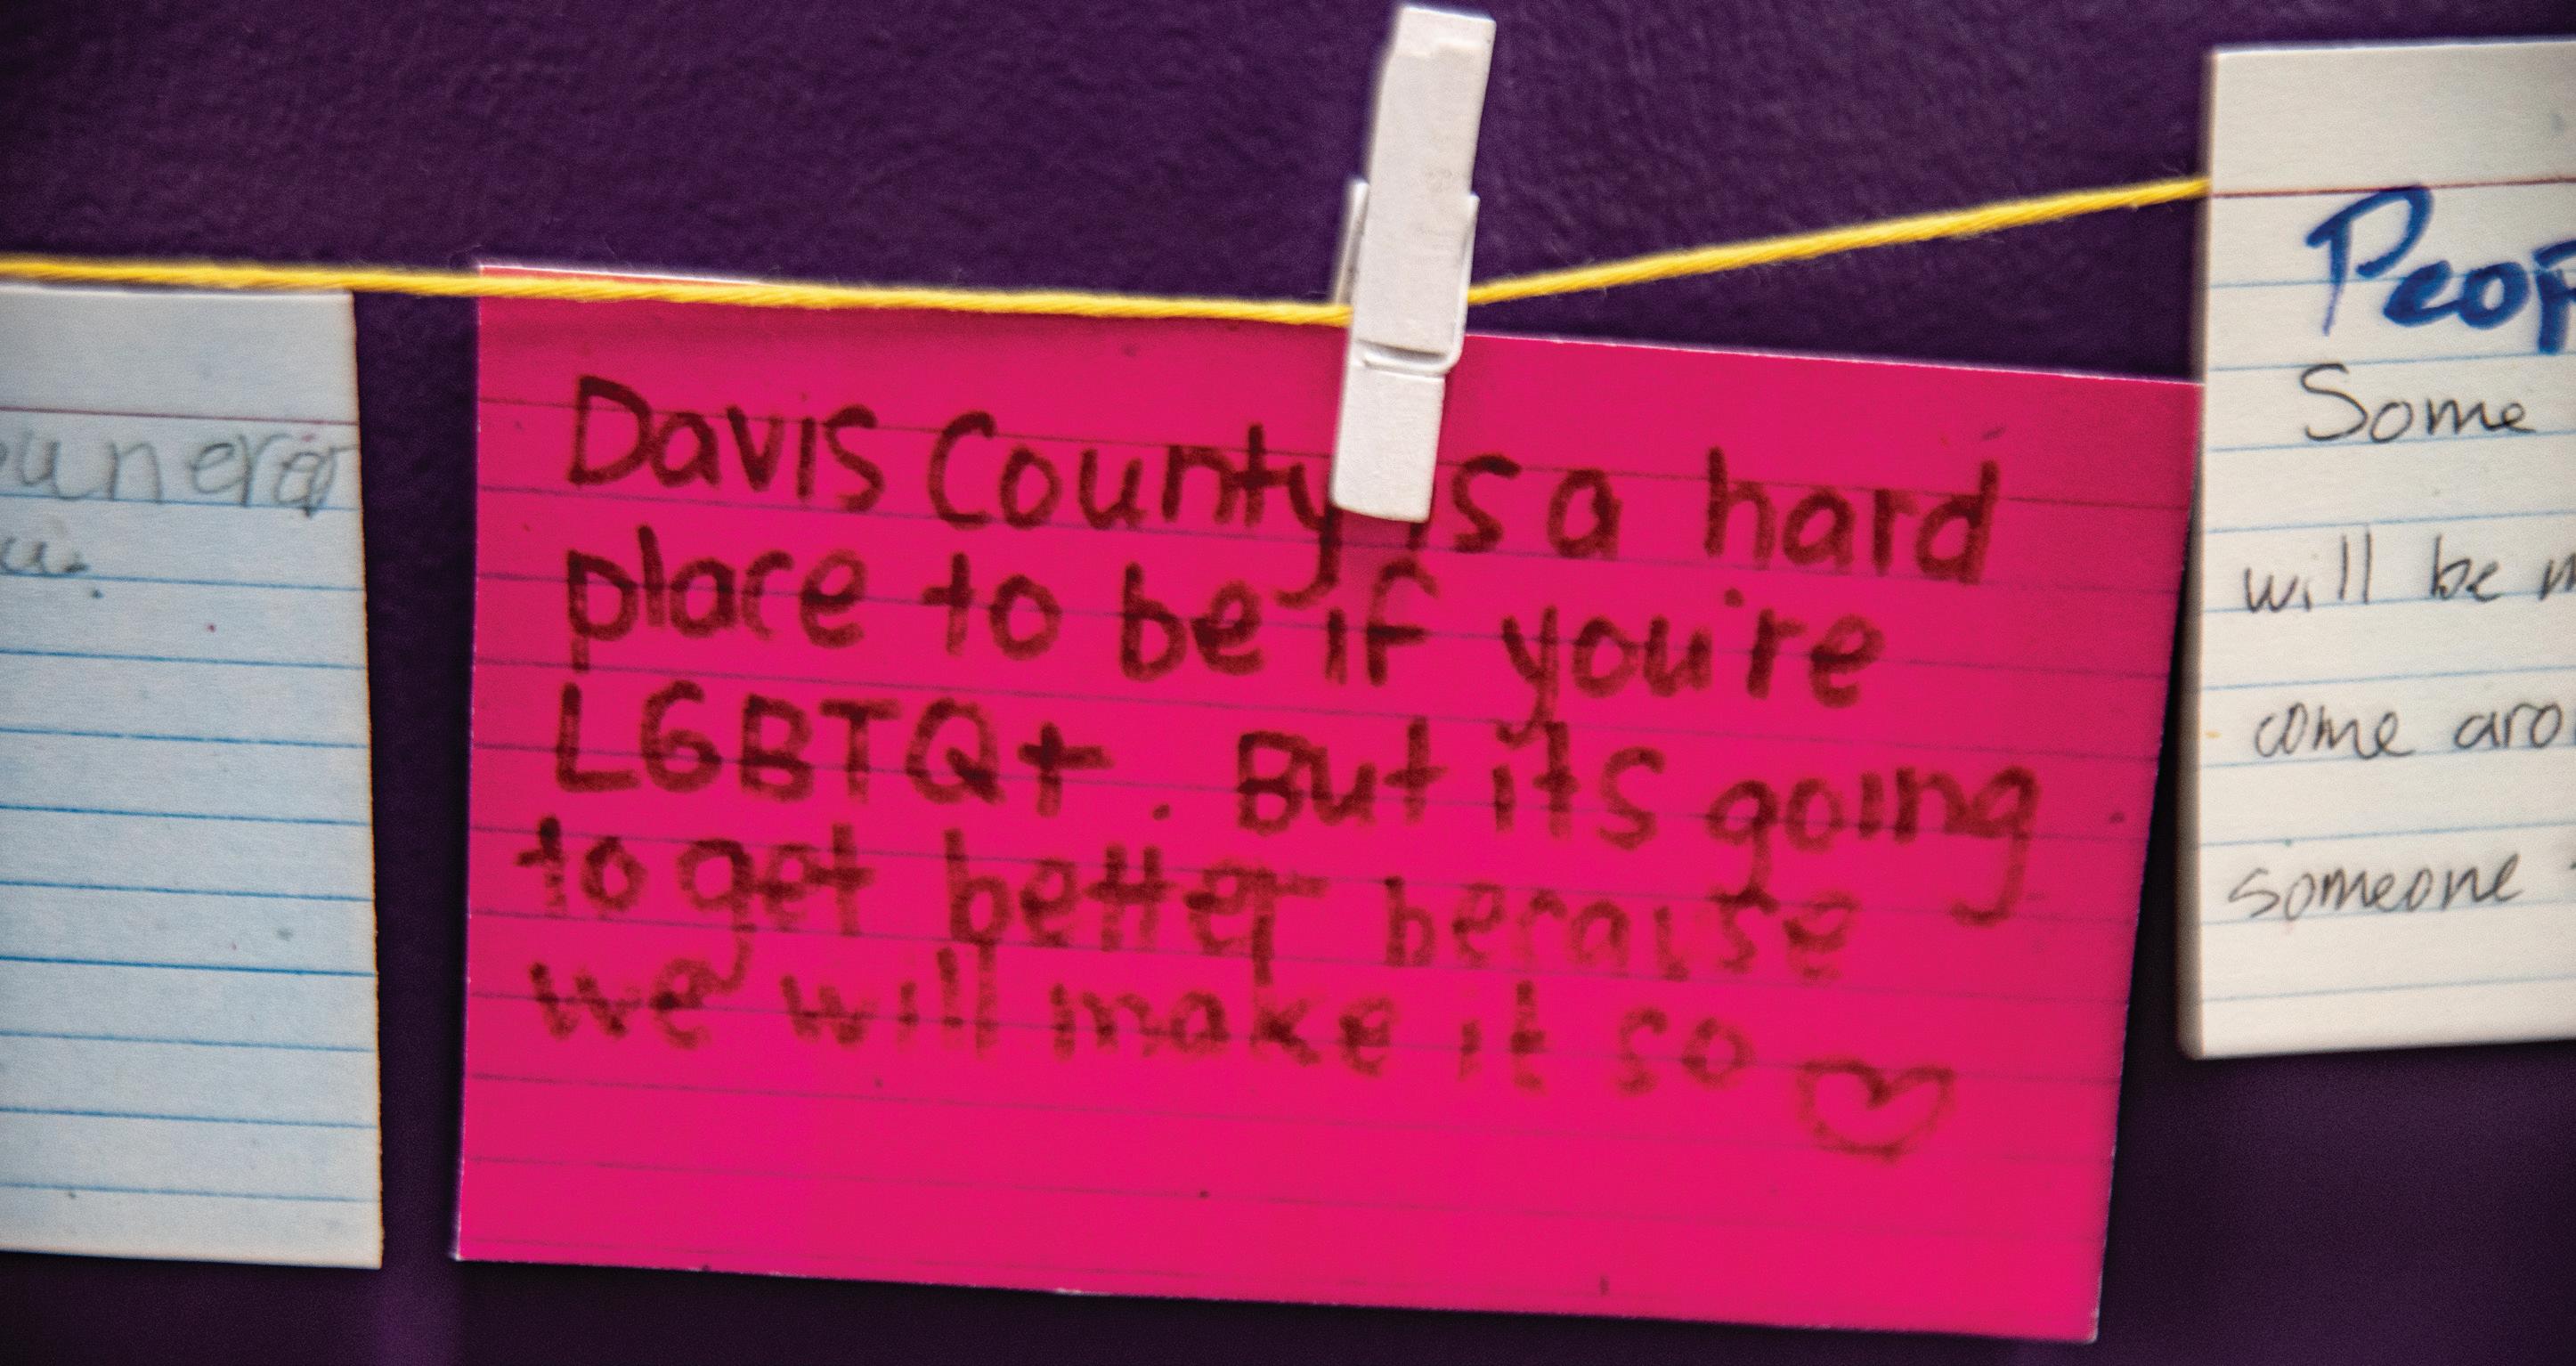 Davis County is a hard
place to be if you're
LGBTQ+. But it's going
to get better because
we will make it so ♡
Some
will be
come
someone